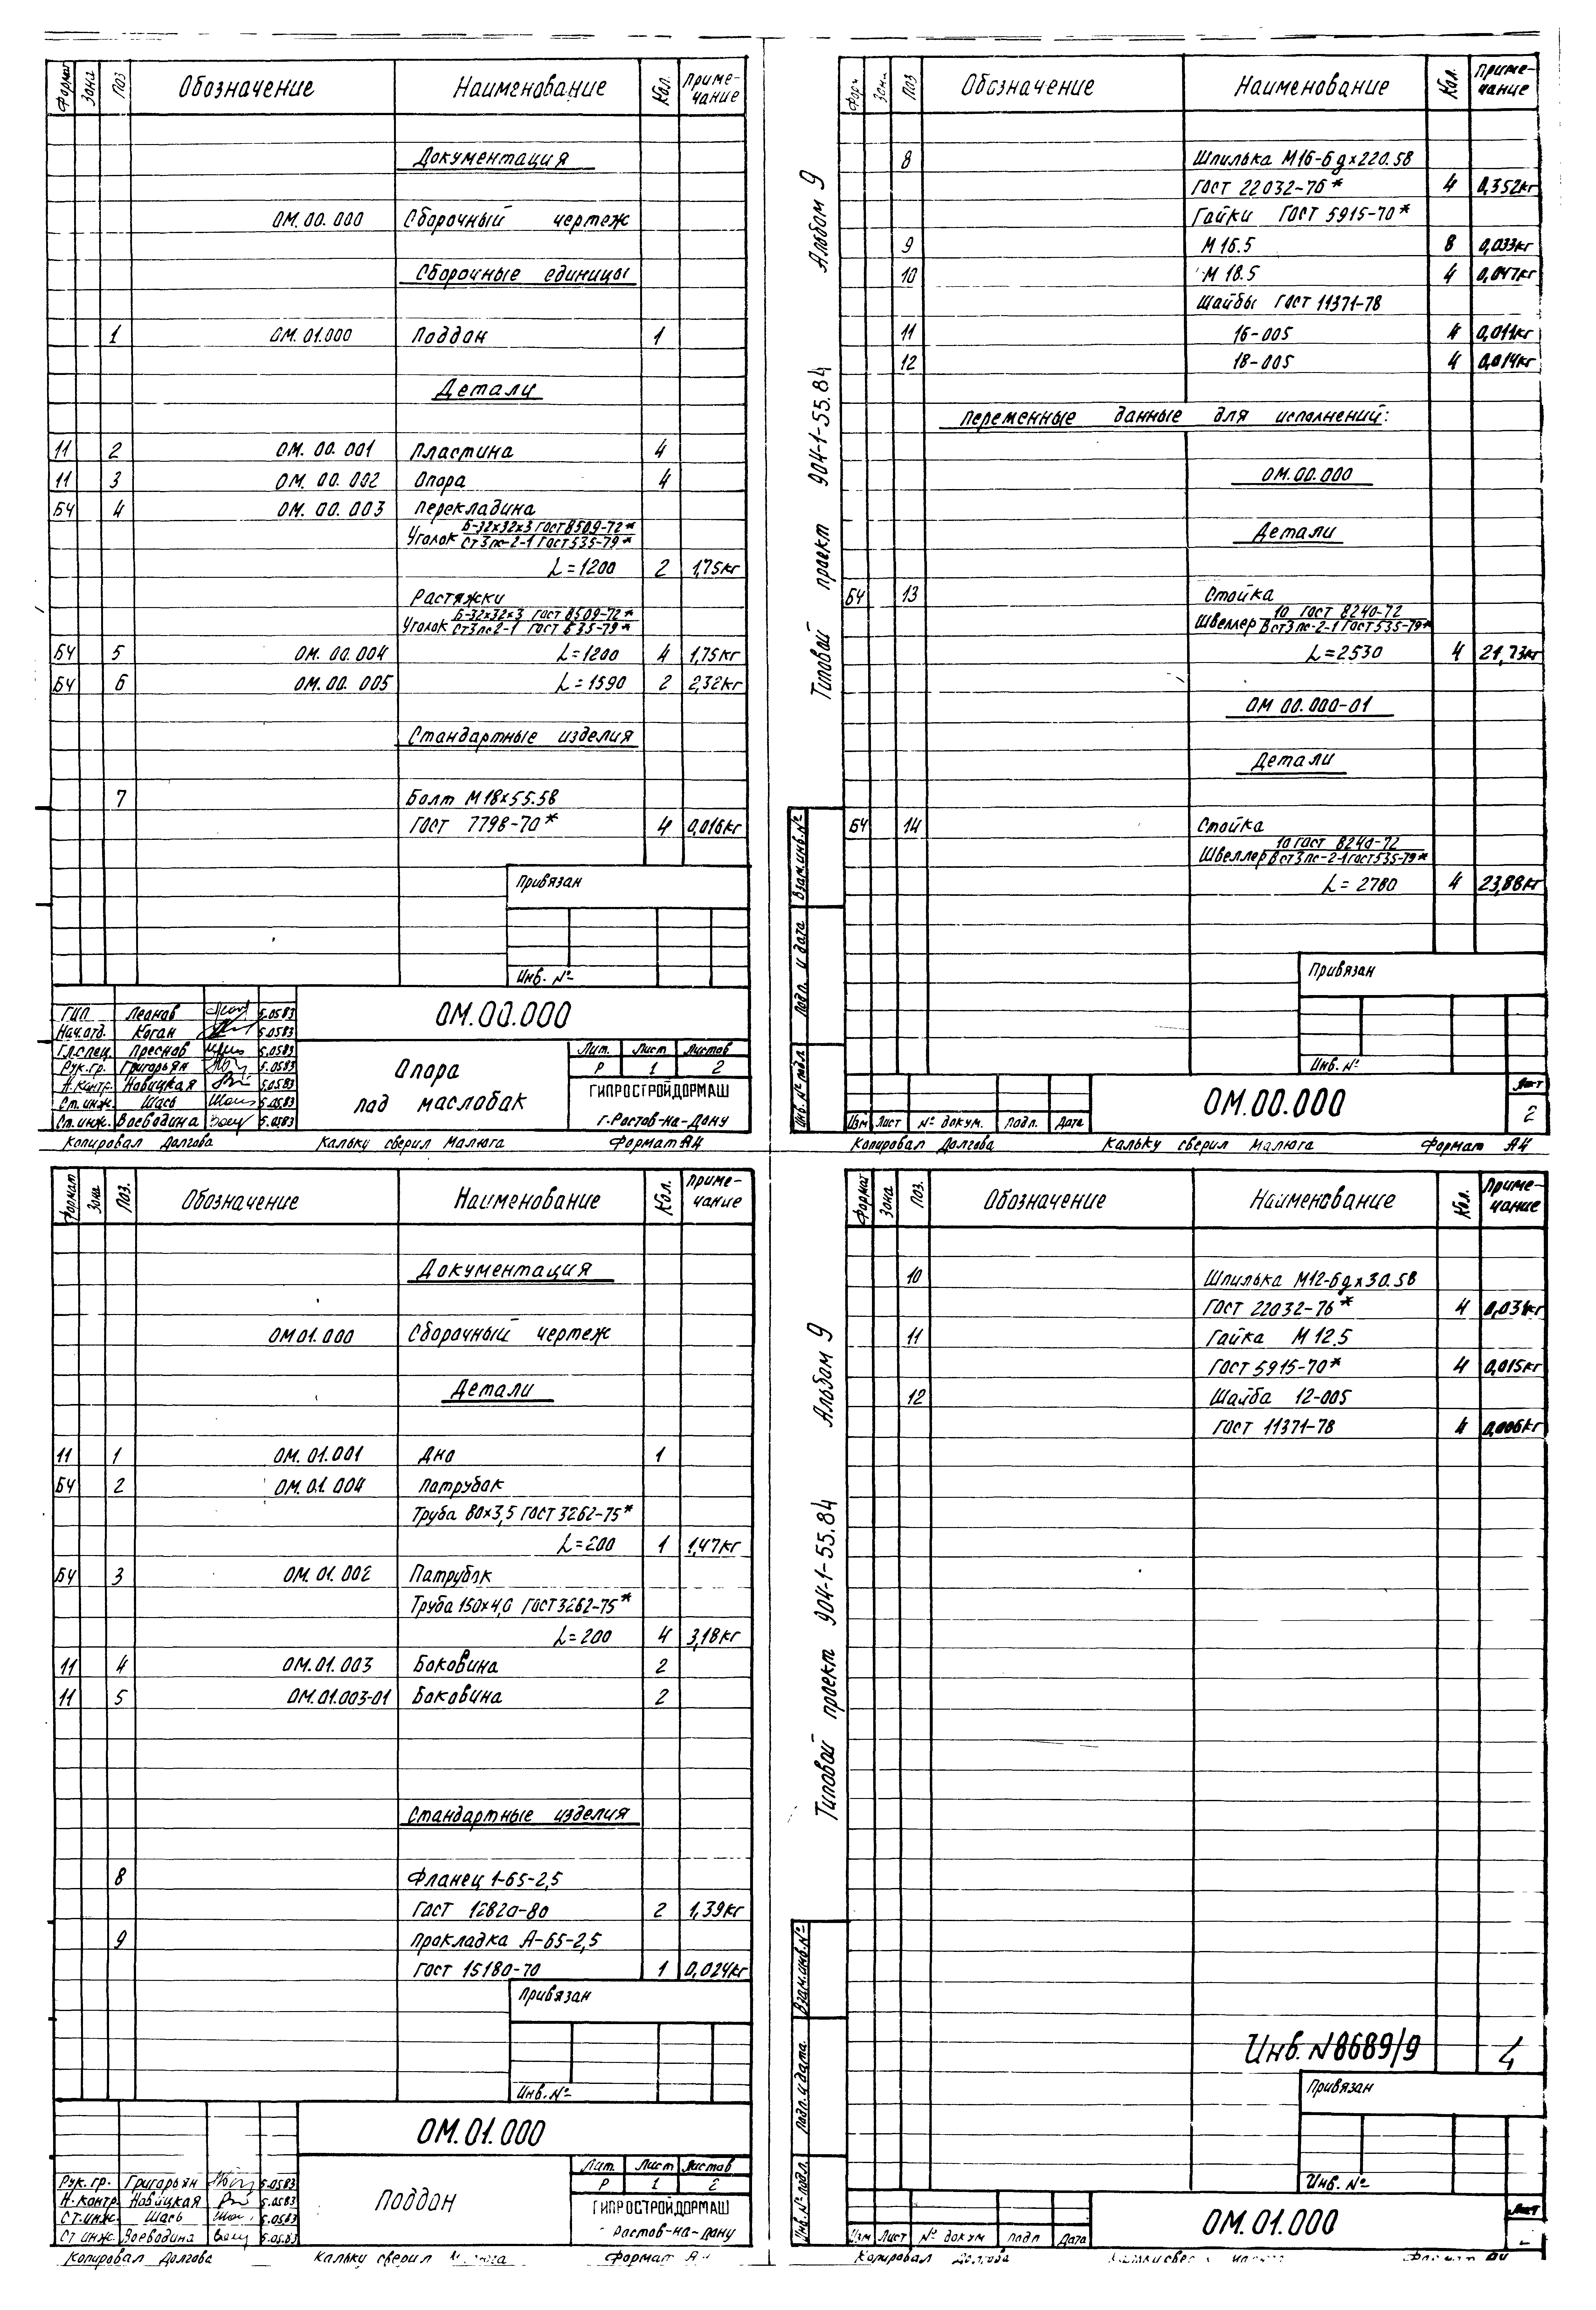 Формат Зона Поз Обозначение Наименование Кол. Приме-чание
Документация
ОМ. 00. 000 Сборочный чертеж
Сборочные единицы
1 ОМ. 01.000 Поддон 1
Детали
11 2 ОМ. 00. 001 Пластина 4
11 3 ОМ. 00. 002 Опора 4
БЧ 4 ОМ. 00. 003 Перекладина
Уголок Б-32х32х3 ГОСТ 8509-72*
Ст3пс-2-1 ГОСТ 535-79*
L=1200 2 1,75кг
Растяжки
Уголок Б-32х32х3 ГОСТ 8509-72*
Ст3пс2-1 ГОСТ 535-79*
БЧ 5 ОМ. 00.004 L=1200 4 1,75кг
БЧ 6 ОМ.00. 005 L=1590 2 2,32кг
Стандартные изделия
7 Болт М18х55.58
ГОСТ 7798-70* 4 0,016кг
Привязан
Инв. №
ГИП Леонов 5.0583
Нач.отд. Коган 5.0583
Гл.спец. Преснов 5.0583
Рук.гр. Григорьян 5.0583
Н.контр. Новицкая 5.0583
Ст.инж. Шась 5.0583
Ст.инж. Воеводина 5.0583
ОМ.00.000
Опора
под маслобак
Лит. Лист Листов
Р 1 2
ГИПРОСТРОЙДОРМАШ
г.Ростов-на-Дону
Копировал Долгова Кальку сверил Малюга Формат А4
Альбом 9
Типовой проект 904-1-55.84
Поз Обозначение Наименование Кол. Приме-чание
8 Шпилька М16-6gх220.58
ГОСТ 22032-76* 4 0,352кг
Гайки ГОСТ 5915-70*
9 М16.5 8 0,033кг
10 М18.5 4 0,047кг
Шайбы ГОСТ 11371-78
11 16-005 4 0,011кг
12 18-005 4 0,014кг
Переменные данные для исполнений:
ОМ.00.000
Детали
БЧ 13 Стойка
Швеллер 10 ГОСТ 8240-72
Вст3пс-2-1 ГОСТ 535-79*
L=2530 4 21,73кг
ОМ 00.000-01
Детали
БЧ 14 Стойка
Швеллер 10 ГОСТ 8240-72
Вст3пс-2-1 ГОСТ 535-79*
L= 2780 4 23,88кг
Взам.инв.№
Подп. и дата
Инв.№ подл
Привязан
Инв. №
Изм Лист № докум. Подп. Дата
ОМ.00.000
Лист
2
Копировал Долгова Кальку сверил Малюга Формат А4
Формат Зона Поз. Обозначение Наименование Кол. Приме-чание
Документация
ОМ01.000 Сборочный чертеж
Детали
11 1 ОМ. 01.001 Дно 1
БЧ 2 ОМ.01. 004 Патрубок
Труба 80х3,5 ГОСТ 3262-75*
L=200 1 1,47кг
БЧ 3 ОМ. 01. 002 Патрубок
Труба 150х4,0 ГОСТ 3262-75*
L=200 4 3,18кг
11 4 ОМ.01.003 Боковина 2
11 5 ОМ.01.003-01 Боковина 2
Стандартные изделия
8 Фланец 1-65-2,5
ГОСТ 12820-80 2 1,39кг
9 Прокладка А-65-2,5
ГОСТ 15180-70 1 0,024кг
Привязан
Инв.№
ОМ.01.000
Рук. гр. Григорьян 5.0583
Н.контр. Новицкая 5.0583
Ст.инж. Шась 5.0583
Ст инж. Воеводина 5.0583
Поддон
Лит. Лист Листов
Р 1 2
ГИПРОСТРОЙДОРМАШ
Ростов-на-Дону
Копировал Долгова Кальку сверил Формат
Альбом 9
Типовой проект 904-1-55.84
Формат Зона Поз. Обозначение Наименование Кол. Приме-чание
10 Шпилька М12-6gх30.58
ГОСТ 22032-76* 4 0,031кг
11 Гайка М12.5
ГОСТ 5915-70* 4 0,015кг
12 Шайба 12-005
ГОСТ 11371-78 4 0,006кг
Инв. N8689/9 4
Взам.инв.№
Подп. и дата
Инв.№ подл.
Привязан
Инв. №
Изм Лист № докум Подп Дата
ОМ.01.000
Лист
Копировал Долгова